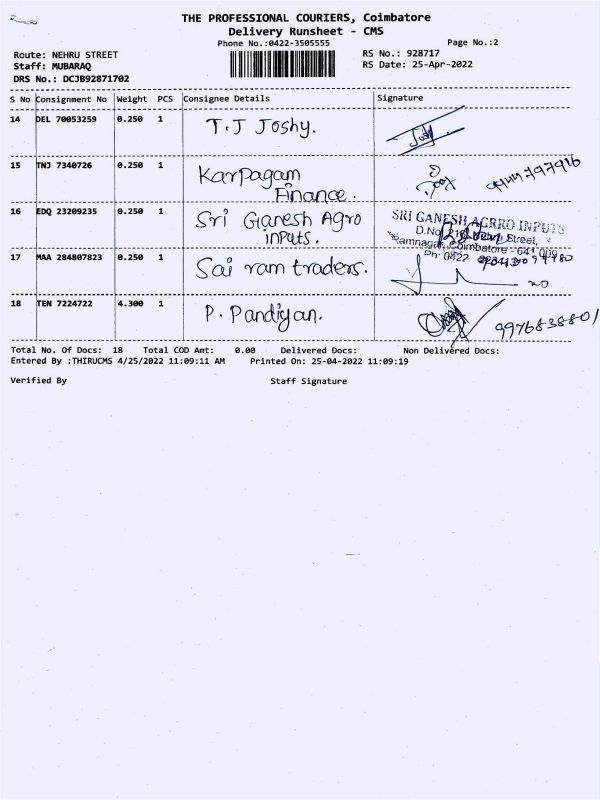 THE PROFESSIONAL COURIERS, Coimbatore
Delivery Runsheet - CMS
Phone No.:0422-3505555
Page No.:2
Route: NEHRU STREET
RS No.: 928717
Staff: MUBARAQ
RS Date: 25-Apr-2022
DRS No.: DCJB92871702
S No Consignment No Weight PCS Consignee Details Signature
14 DEL 70053259 0.250 1 T.J Joshy.
15 TNJ 7340726 0.250 1 Karpagam
Finance.
16 EDQ 23209235 0.250 1 Sri Ganesh Agro
inputs.
SRI GANESH AGRRO INPUTS
Street,
Ramnagar, Coimbatore - 641 009
Ph: 0422
17 MAA 284807823 0.250 1 Sai ram traders.
18 TEN 7224722 4.300 1 P. Pandiyan. 9976838801
Total No. Of Docs: 18 Total COD Amt: 0.00 Delivered Docs: Non Delivered Docs:
Entered By :THIRUCMS 4/25/2022 11:09:11 AM Printed On: 25-04-2022 11:09:19
Verified By Staff Signature